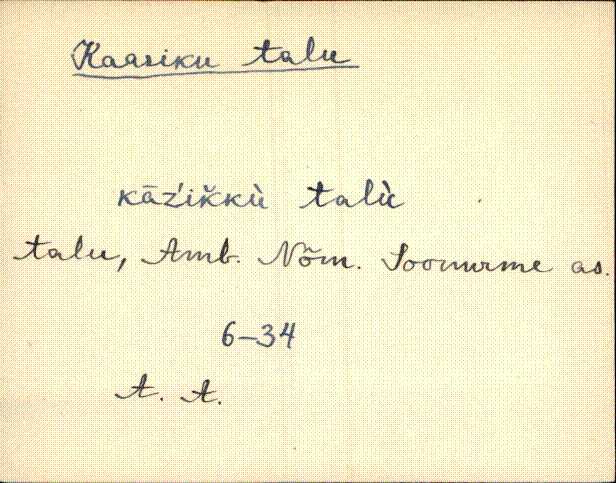 Kaasiku talu
kāźik̆kù talù
talu, Amb. Nõm. Soonurme as.
6-34
A. A.